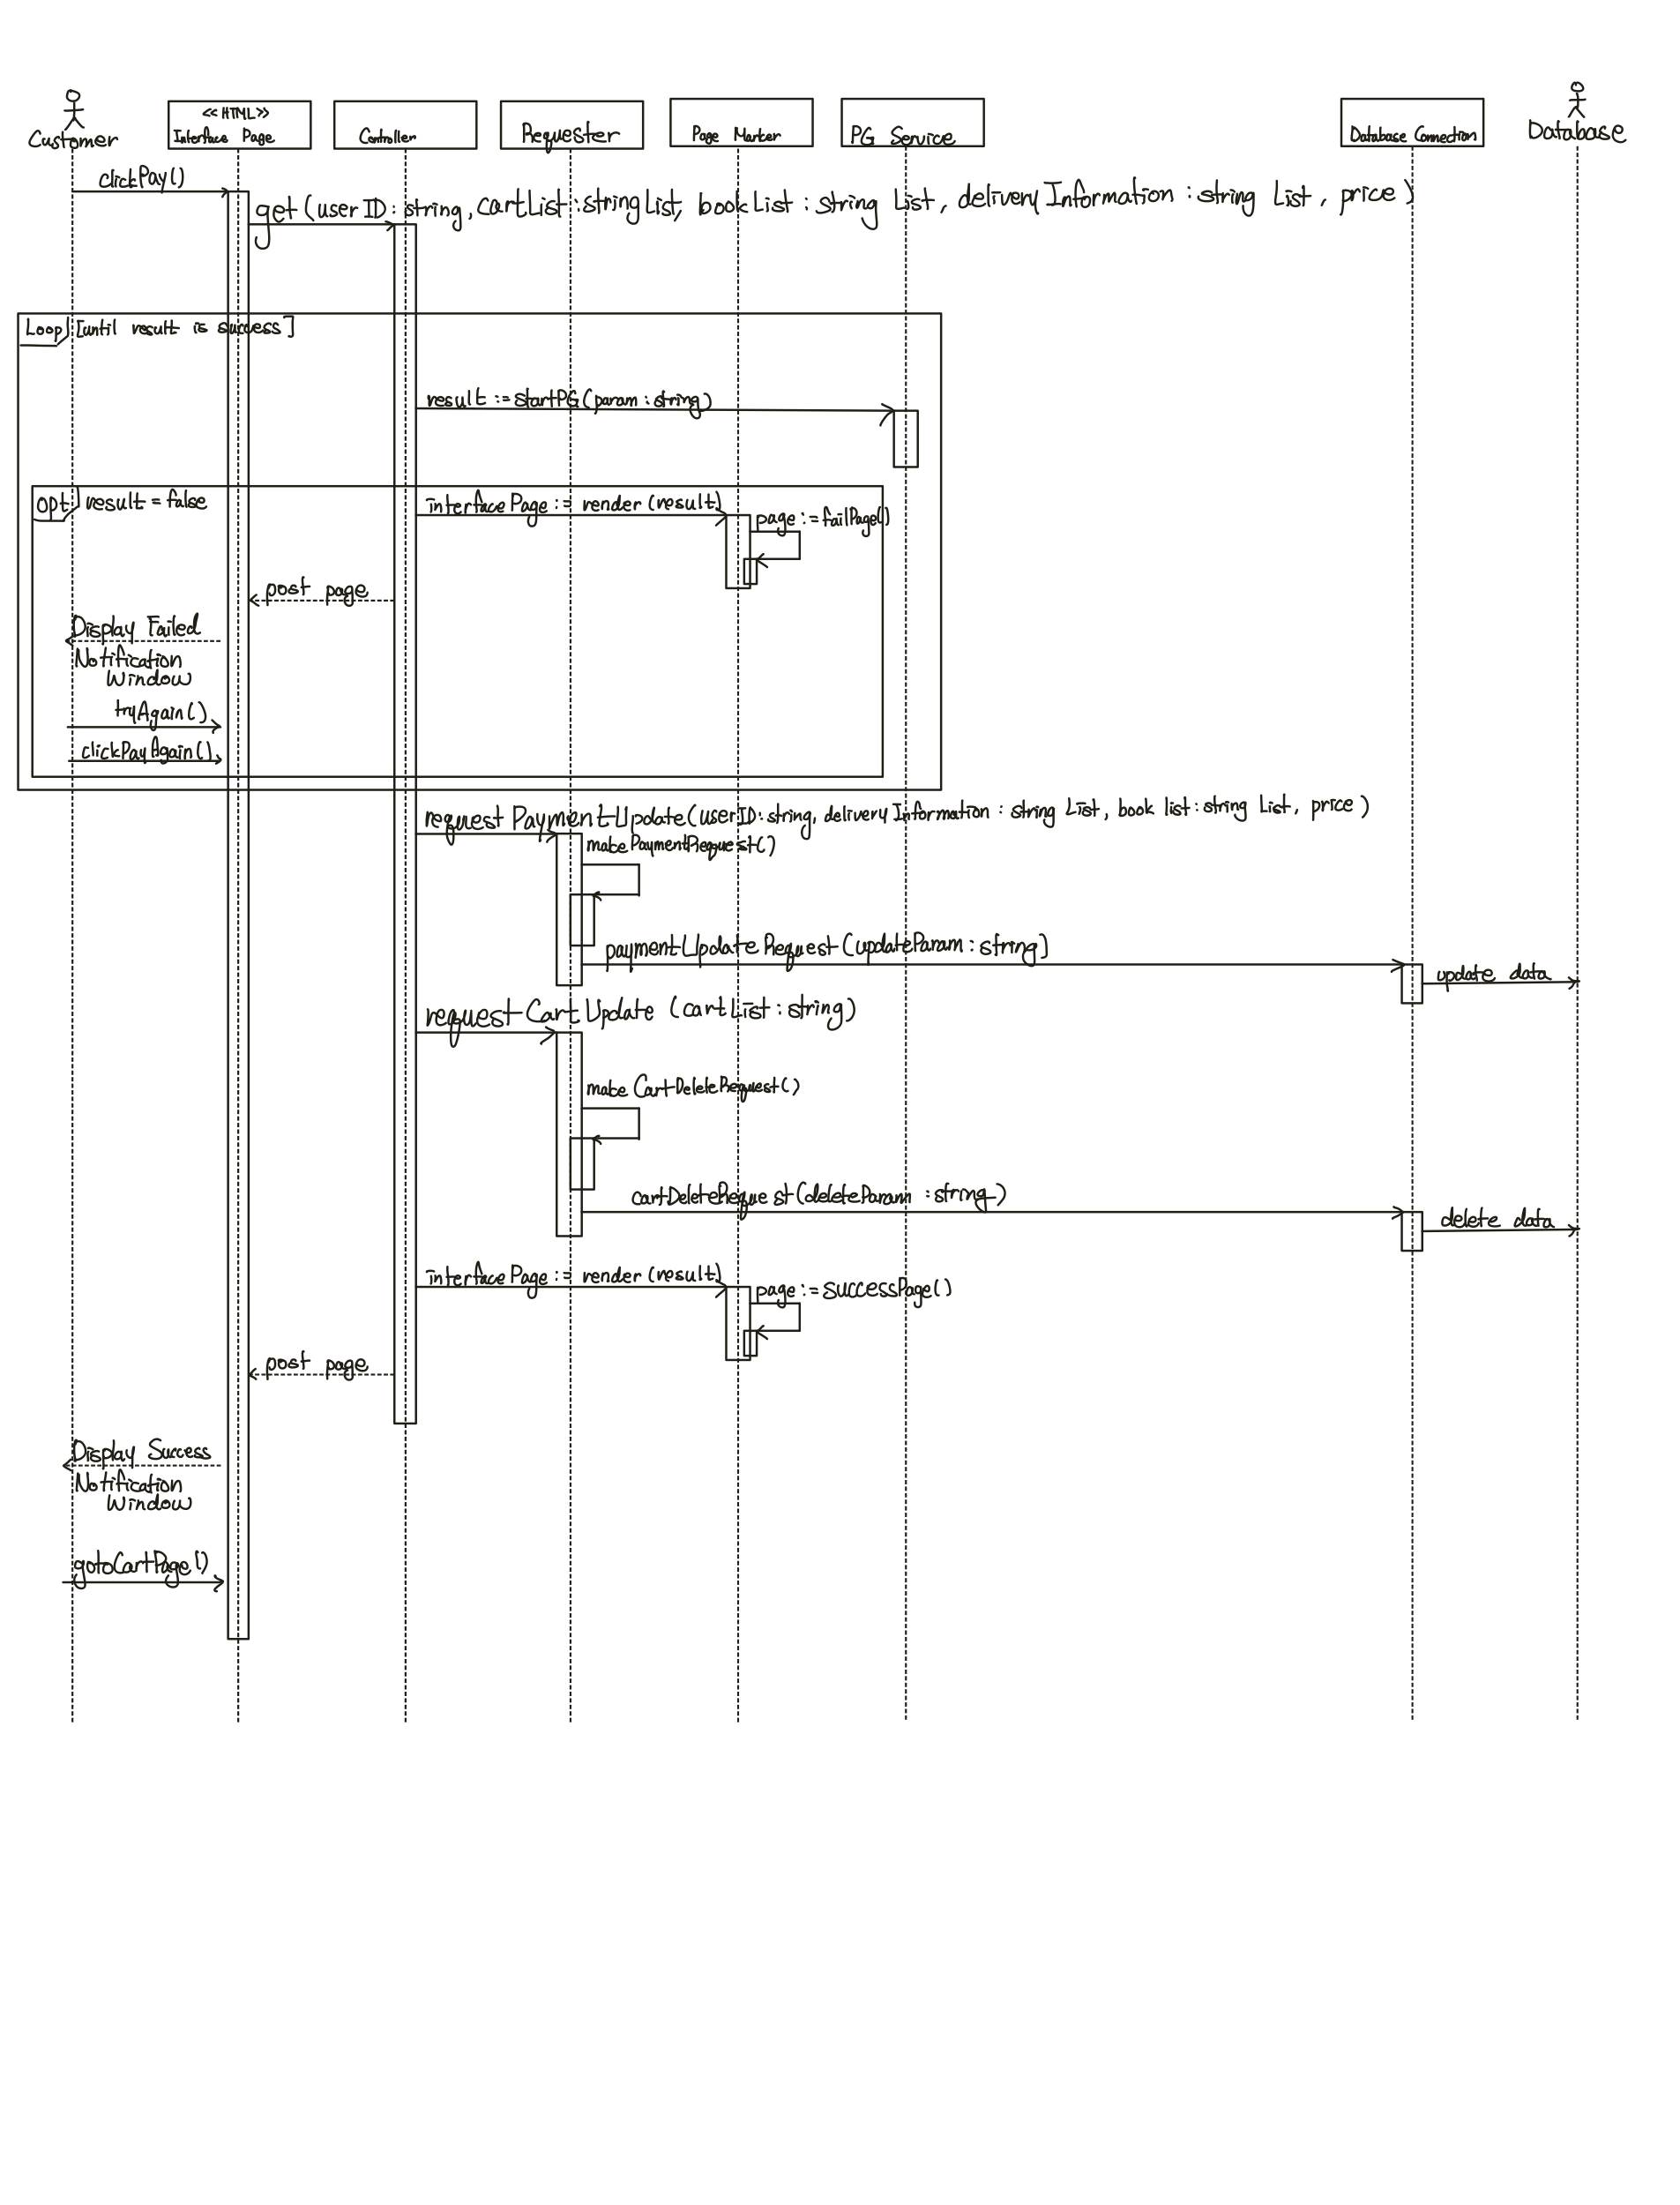 Customer
<< HTML >>
Interface Page
Controller
Requester
Page Marker
PG Service
Database Connection
Database
clickPay()
get (user ID : string, cartList : string List, book List : string List, delivery Information : string List, price)
Loop [until result is success]
result := startPG (param : string)
opt result = false
interface Page := render (result)
page := failPage()
post page
Display Failed
Notification
Window
tryAgain()
clickPayAgain()
request PaymentUpdate (userID : string, delivery Information : string List, book list : string List, price)
make PaymentRequest()
paymentUpdate Request (updateParam : string)
update data
request Cart Update (cart List : string)
make CartDeleteRequest()
cartDeleteRequest (deleteParam : string)
delete data
interface Page := render (result)
page := successPage()
post page
Display Success
Notification
Window
gotoCartPage()